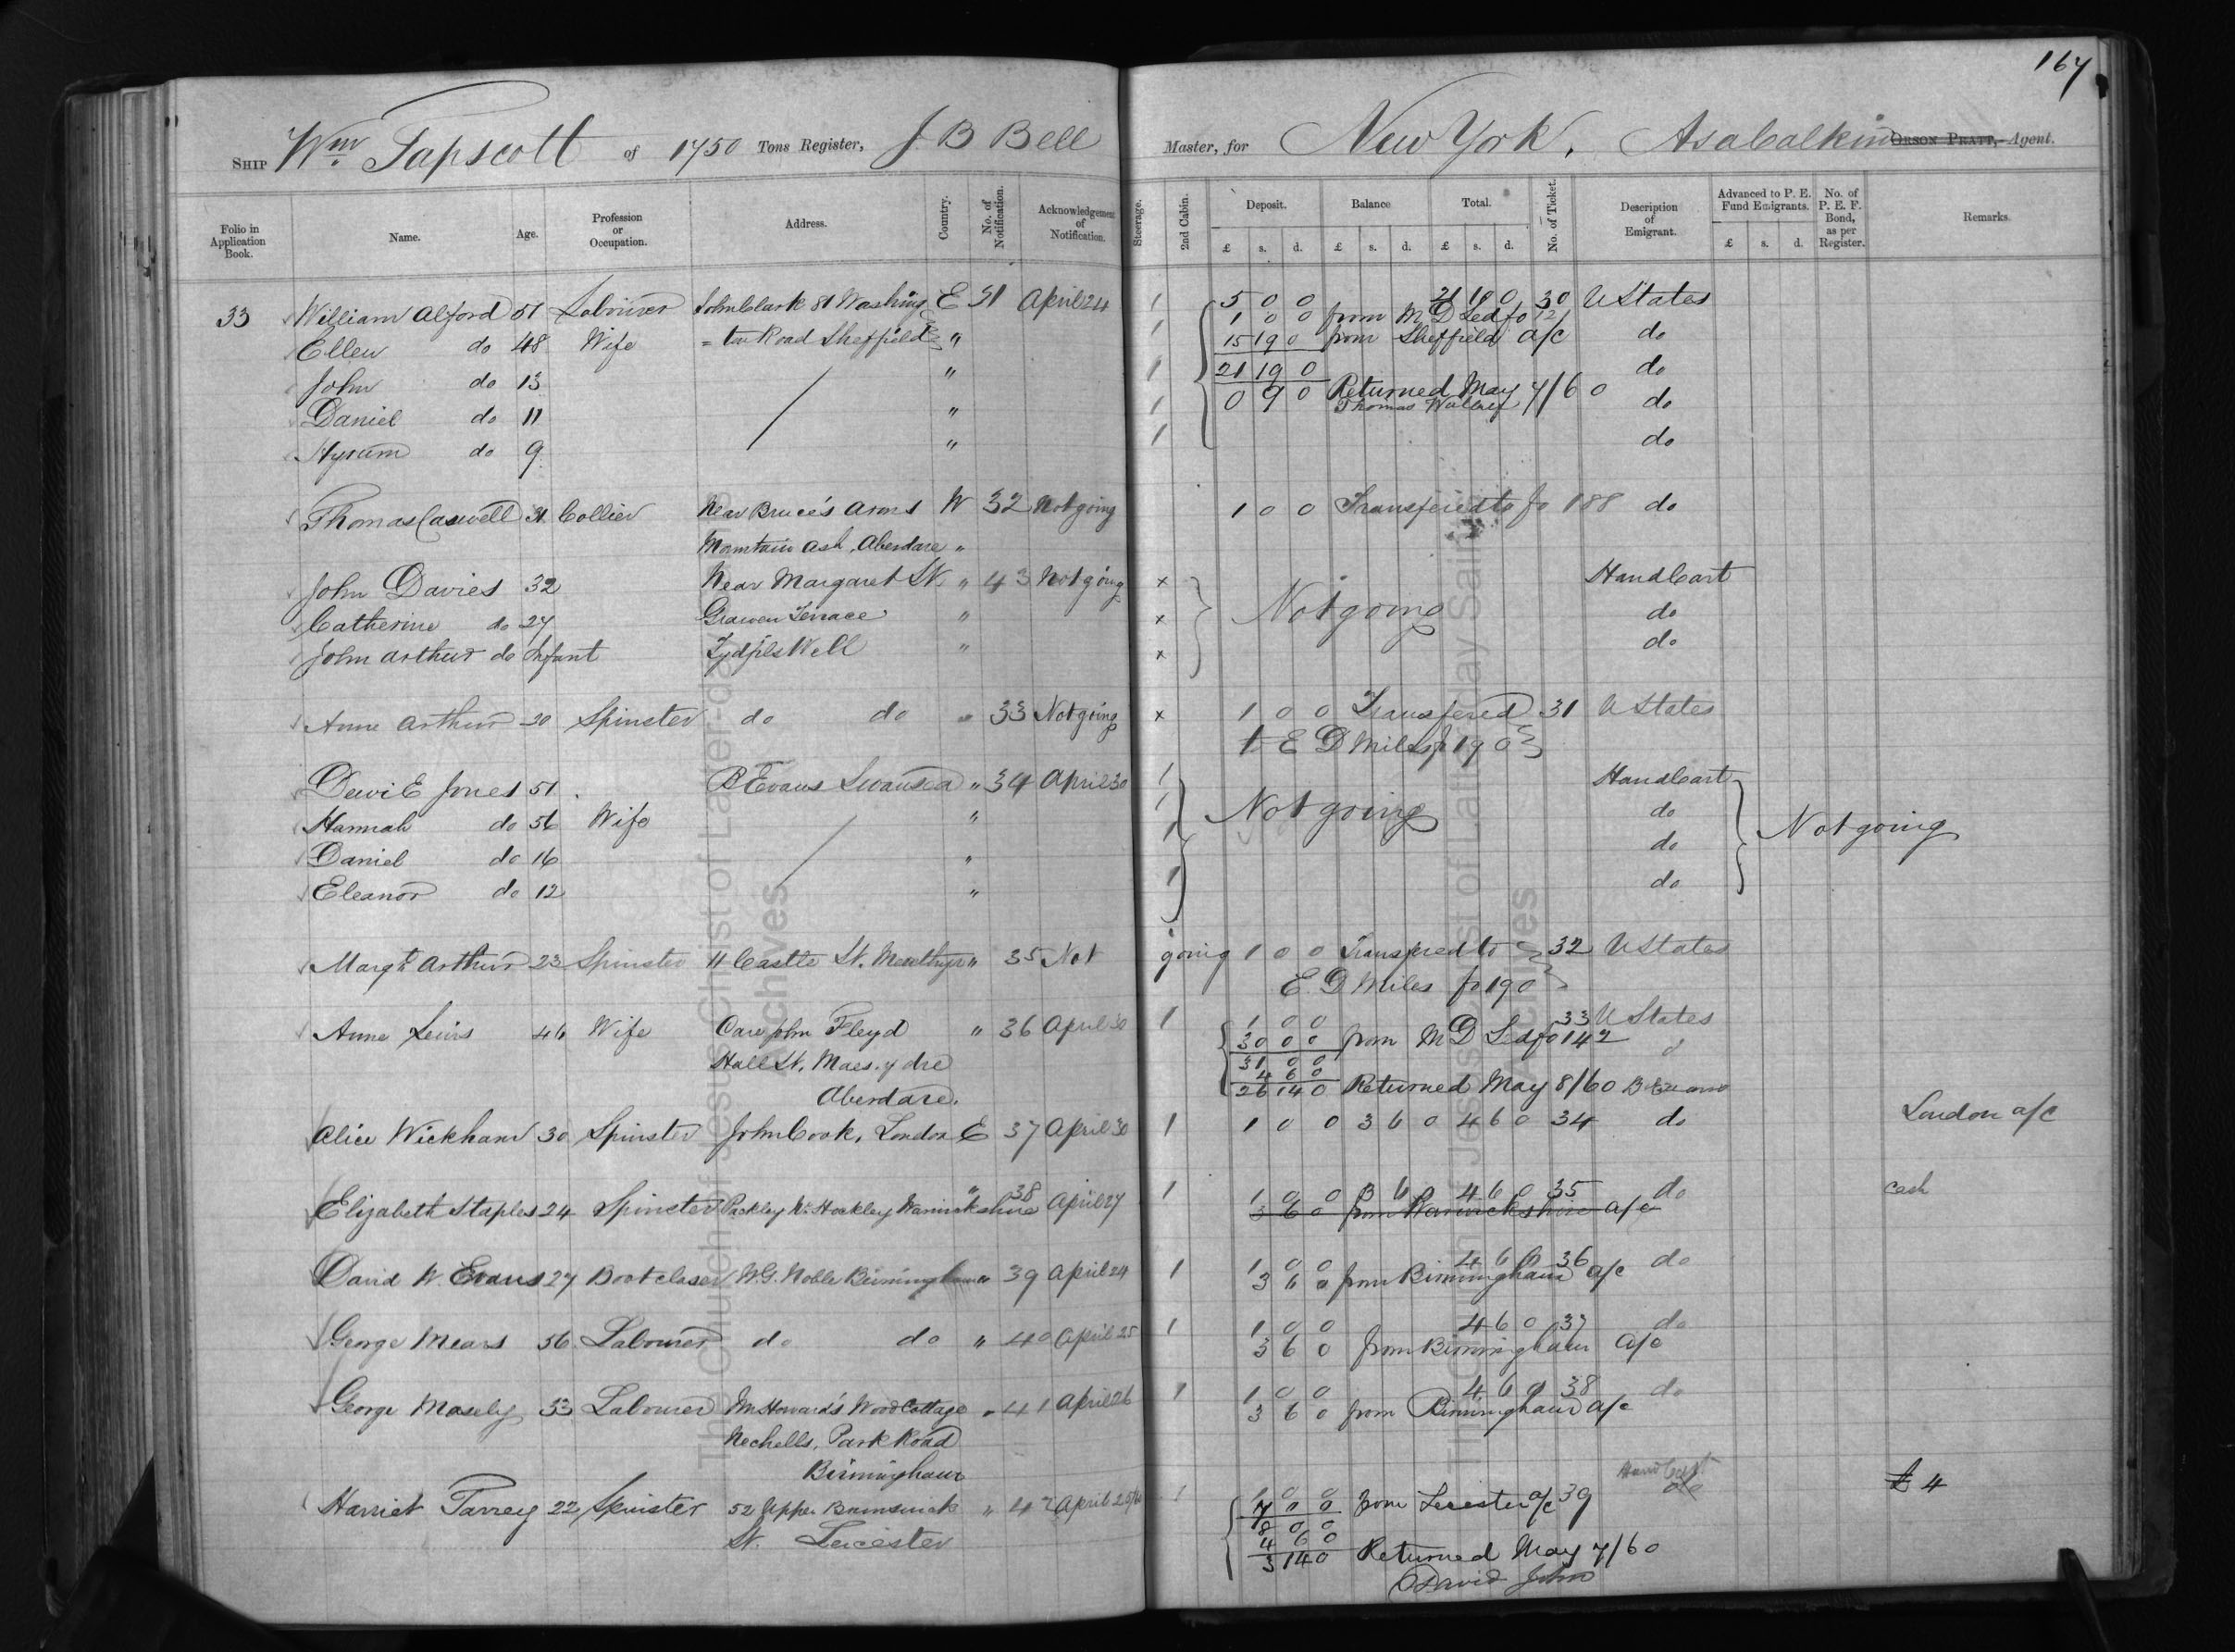 167
SHIP Wm Tapscott of 1750 Tons Register, J B Bell Master, for New York, Asa Calkin ORSON PRATT, Agent.
Folio in Application Book. Name. Age. Profession or Occupation. Address. Country. No. of Notification. Acknowledgement of Notification. Steerage. 2nd Cabin. Deposit. Balance Total. No. of Ticket. Description of Emigrant. Advanced to P. E. Fund Emigrants. No. of P. E. F. Bond, as per Register. Remarks.
£ s. d. £ s. d. £ s. d. £ s. d.
33 William Alford 51 Labourer John Clark 81 Washing E 31 April 24 1 5 0 0 21 10 0 30 U States
1 0 0 from M D Led fo 121
Ellen do 48 Wife = ton Road Sheffield " 1 15 19 0 from Sheffield a/c do
John do 13 " 1 21 19 0 do
Daniel do 11 " 1 0 9 0 Returned May 7/60 do
Thomas Wallace
Hyrum do 9 " 1 do
Thomas Caswell 31 Collier Near Bruce's Arms W 32 Not going 1 0 0 Transfered to fo 188 do
Mountain Ash, Aberdare "
John Davies 32 Near Margaret St. " 43 Not going x Not going HandCart
Catherine do 27 Grawen Terrace " x do
John Arthur do Infant Tydfils Well " x do
Anne Arthur 20 Spinster do do " 33 Not going x 1 0 0 Transfered 31 U States
to E D Miles fo 190
Dewi E Jones 51 B Evans Swansea " 34 April 30 1 Not going HandCart Not going
Hannah do 56 Wife " 1 do
Daniel do 16 " 1 do
Eleanor do 12 " 1 do
Margt Arthur 23 Spinster 11 Castle St. Merthyr " 35 Not going 1 0 0 Transfered to 32 U States
E. D Miles fo 190
Anne Lewis 46 Wife Care John Floyd " 36 April 30 1 1 0 0 33 U States
30 0 0 from M D Led fo 142
Hall St, Maes. y dre 31 0 0
4 6 0
Aberdare. 26 14 0 Returned May 8/60 B Evans
Alice Wickham 30 Spinster John Cook, London E 37 April 30 1 1 0 0 3 6 0 4 6 0 34 do London a/c
Elizabeth Staples 24 Spinster Hockley Warwickshire " 38 April 27 1 1 0 0 3 6 0 4 6 0 35 do cash
3 6 0 from Warwickshire a/c
David W. Evans 27 Boot closer W.G. Noble Birmingham " 39 April 24 1 1 0 0 4 6 0 36 do
3 6 0 from Birmingham a/c
George Mears 56 Labourer do do " 40 April 25 1 1 0 0 4 6 0 37 do
3 6 0 from Birmingham a/c
George Moseley 33 Labourer Mr Howard's Wood Cottage " 41 April 26 1 1 0 0 4 6 0 38 do
3 6 0 from Birmingham a/c
Nechells, Park Road
Birmingham
Harriet 22 Spinster 52 Upper Brunswick " 42 April 1 1 0 0 HandCart do £ 4
7 0 0 from Leicester a/c 39
St. Leicester 8 0 0
4 6 0
3 14 0 Returned May 7/60
David John
The Church of Jesus Christ of Latter-day Saints
Archives
The Church of Jesus Christ of Latter-day Saints
Archives